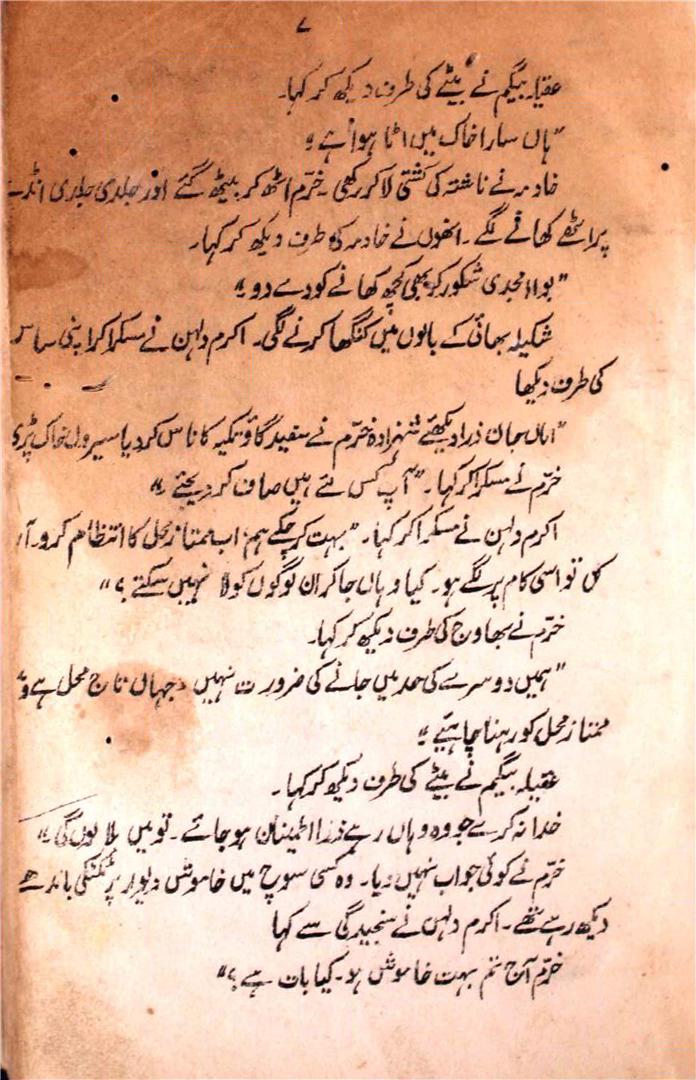 ۷
عقیلہ بیگم نے بیٹے کی طرف دیکھ کر کہا۔
"ہاں سارا خاک میں اٹا ہوا ہے"
خادمہ نے ناشتہ کی کشتی لا کر رکھی۔ خرّم اٹھ کر بیٹھ گئے اور جلدی جلدی انڈے
پراٹھے کھانے لگے۔ انھوں نے خادمہ کی طرف دیکھ کر کہا۔
"بوا امجدی شکور کو بھی کچھ کھانے کو دے دو"
شکیلہ بھائی کے بالوں میں کنگھا کرنے لگی۔ اکرم دلہن نے مسکرا کر اپنی ساس
کی طرف دیکھا
"اماں جان ذرا دیکھئے شہزادہ خرّم نے سفید گاؤ تکیہ کا ناس کر دیا سیروں خاک پڑی
خرّم نے مسکرا کر کہا۔ "آپ کس لئے ہیں صاف کر دیجئے"
اکرم دلہن نے مسکرا کر کہا۔ "بہت کر چکے ہم؛ اب ممتاز محل کا انتظام کرو۔ آج
کل تو اسی کام پر لگے ہو۔ کیا وہاں جا کر ان لوگوں کو لا نہیں سکتے؟"
خرّم نے بھاوج کی طرف دیکھ کر کہا۔
"ہمیں دوسرے کی حد میں جانے کی ضرورت نہیں۔ جہاں تاج محل ہے وہیں
ممتاز محل کو رہنا چاہئیے"
عقیلہ بیگم نے بیٹے کی طرف دیکھ کر کہا۔
خدا نہ کرے جو وہ وہاں رہے ذرا اطمینان ہو جائے۔ تو میں بلا لوں گی"
خرّم نے کوئی جواب نہیں دیا۔ وہ کسی سوچ میں خاموش دیوار پر ٹکٹکی باندھے
دیکھ رہے تھے۔ اکرم دلہن نے سنجیدگی سے کہا
خرّم آج تم بہت خاموش ہو۔ کیا بات ہے؟"